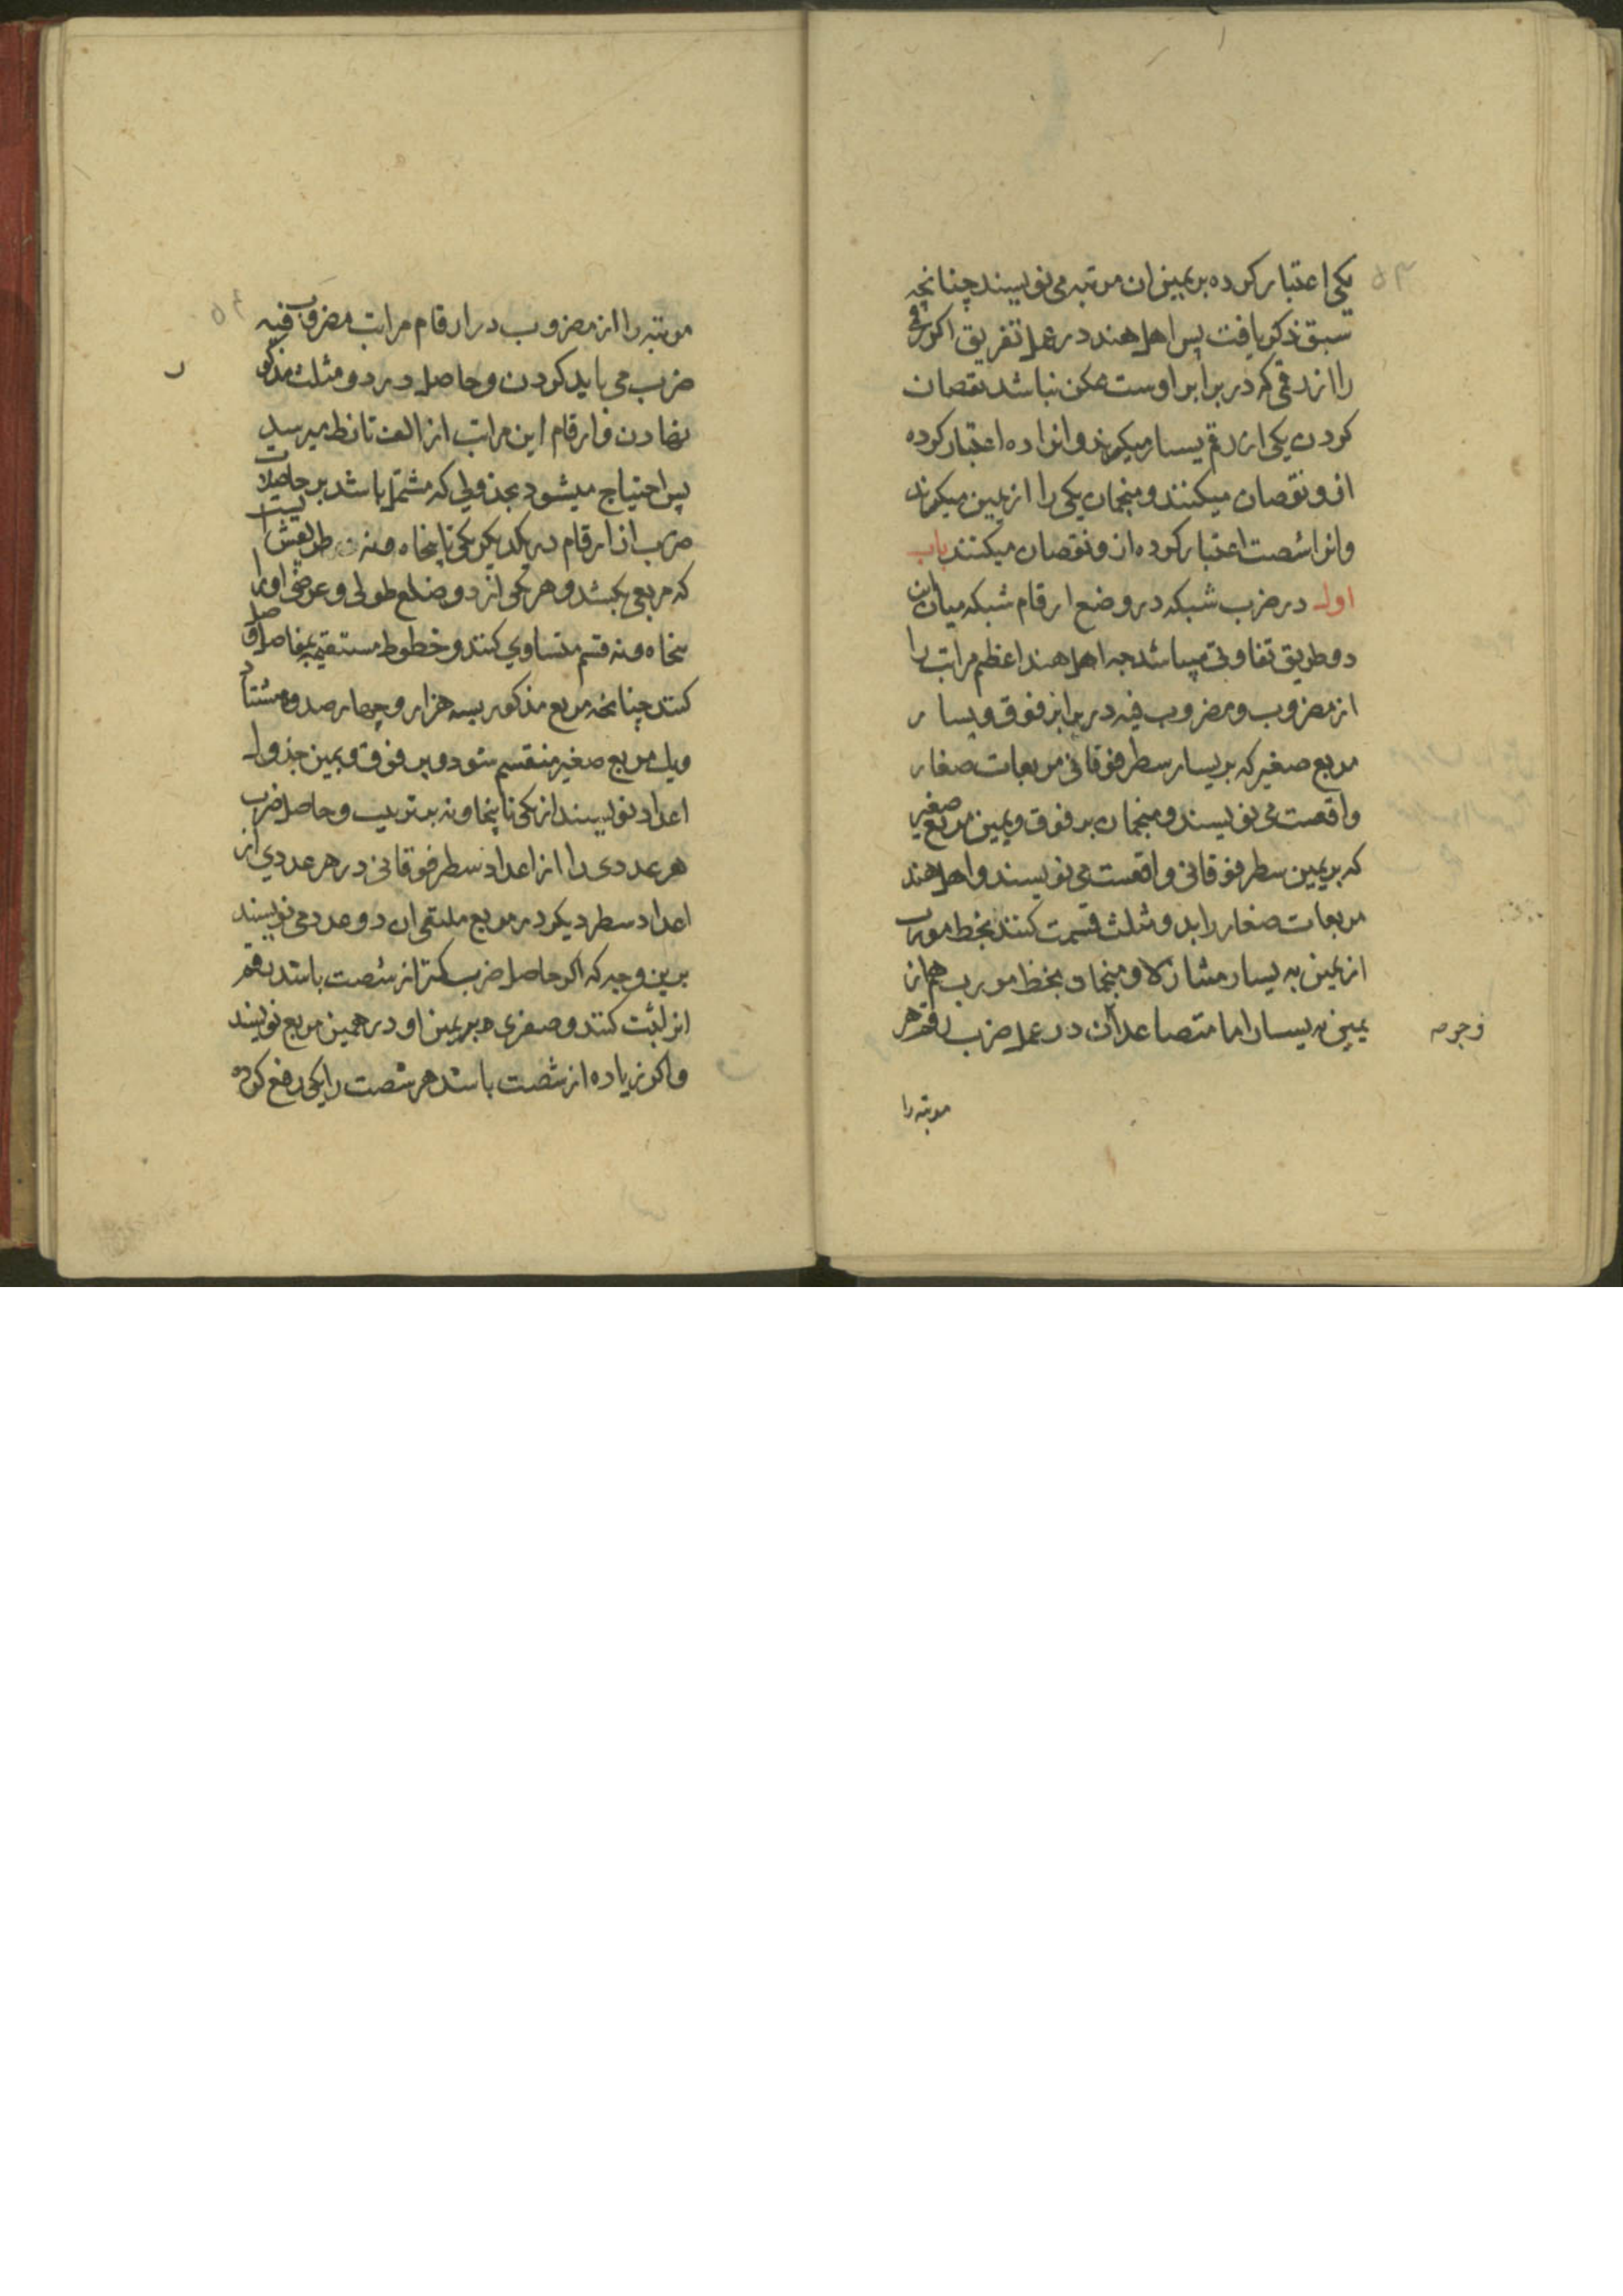 یکی اعتبار کرده بر یمین ان مرتبه می نویسند چنانچه
سبق ذکر یافت پس اهل هند در عمل تفریق اکر رقمی
را از رقمی که در برابر اوست ممکن نباشد نقصان
کردن یکی از رقم یسار میکیرند و انرا ده اعتبار کرده
ازو نقصان میکنند و منجمان یکی را از یمین میکیرند
وانرا شصت اعتبار کرده ازو نقصان میکنند باب
اول در ضرب شبکه در وضع ارقام شبکه میان این
دو طریق تفاوتی میباشد چه اهل هند اعظم مراتب را
از مضروب و مضروب فیه در برابر فوق و یسار
مربع صغیر که بر یسار سطر فوقانی مربعات صغار
واقعست می نویسند و منجمان بر فوق و یمین مربع صغیر
که بر یمین سطر فوقانی واقعست می نویسند و اهل هند
مربعات صغار را بدو مثلث قسمت کنند بخط مورب
از یمین به یسار متنازلا و منجمان بخط مورب هم از
یمین به یسار اما متصاعدا ان در عمل ضرب رقم هر
وجوه
مرتبه را
مرتبه را از مضروب در ارقام مراتب مضروب فیه
ضرب می باید کردن و حاصل در دو مثلث مذکور
نهادن و ارقام این مراتب از الف تا نط میرسد
پس احتیاج میشود بجدولی که مشتمل باشد بر حاصلات
ضرب ان ارقام در یکدیکر یکی تا پنجاه و نه طریقش انست
که مربعی بکشند و هر یکی از دو ضلع طولی و عرضی او را
پنجاه و نه قسم متساوی کنند و خطوط مستقیمه بمفاصل اقسام
کنند چنانچه مربع مذکور بسه هزار و چهار صد و هشتاد
ویک مربع صغیر منقسم شود و بر فوق و یمین جدول
اعداد نویسند از یکی تا پنجاو نه بر ترتیب و حاصل ضرب
هر عددی را از اعداد سطر فوقانی در هر عددی از
اعداد سطر دیکر در مربع ملتقی ان دو عدد می نویسند
برین وجه که اکر حاصل ضرب کمتر از شصت باشد رقم
انرا ثبت کنند و صفری بر یمین او در همین مربع نویسند
واکر زیاده از شصت باشد هر شصت را یکی رفع کرده